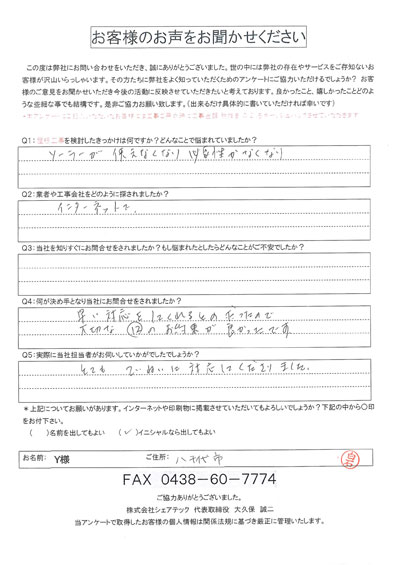 お客様のお声をお聞かせください
この度は弊社にお問い合わせをいただき、誠にありがとうございました。世の中には弊社の存在やサービスをご存知ないお
客様が沢山いらっしゃいます。その方たちに弊社をよく知っていただくためのアンケートにご協力いただけるでしょうか? お客
様のご意見をお聞かせいただき今後の活動に反映させていただきたいと考えております。良かったこと、嬉しかったことどのよ
うな些細な事でも結構です。是非ご協力お願い致します。(出来るだけ具体的に書いていただければ幸いです)
Q1:屋根工事を検討したきっかけは何ですか?どんなことで悩まれていましたか?
ソーラーが 使えなくなり 必要性がなくなり
Q2:業者や工事会社をどのように探されましたか?
インターネットで、
Q3:当社を知りすぐにお問合せをされましたか?もし悩まれたとしたらどんなことがご不安でしたか?
Q4:何が決め手となり当社にお問合せをされましたか?
早い対応をしてくれるとの だったので
大切な の お約束が 良かったです
Q5:実際に当社担当者がお伺いしていかがでしたでしょうか?
とても ていねいに 対応してくださりました。
*上記についてお願いがあります。インターネットや印刷物に掲載させていただいてもよろしいでしょうか?下記の中から〇印
をお付下さい。
( )名前を出してもよい (✓)イニシャルなら出してもよい
お名前: Y様 ご住所: 八千代市
FAX 0438-60-7774
ご協力ありがとうございました。
株式会社シェアテック 代表取締役 大久保 誠二
当アンケートで取得したお客様の個人情報は関係法規に基づき厳正に管理いたします。